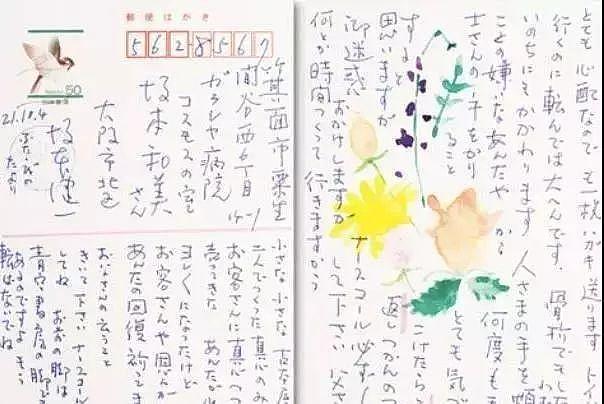 郵便はがき
562-8567
50
箕面市粟生
間谷西6丁目
ガラシヤ病院
コスモスの室
坂本和美さん
大阪市北
坂本健一
21.10.4
たより
小さな小さな古本屋
二人でつくった真心のみ
お客さんに真心
売ってきた あんたが
ヨレくになったけど
お客さんや
あんたの回復祈ってま
言うこと
きいて下さい ナースコール
してね の脚は
青空書房の脚で
あるのですよ そう
転ばないでね
とても心配なので も一枚ハガキ送ります トイ
行くのに転んでは大へんです。骨折でもした
いのちにもかかわります 人さまの手を
ことの嫌いなあんたや から 何度も
士さんの手をかりること とても気づ
すると こけたら
思いますが 返しつかんの
御迷惑 おかけしますが ナースコール必ず
して下さい 父さ
何とか時間つくって行きますから